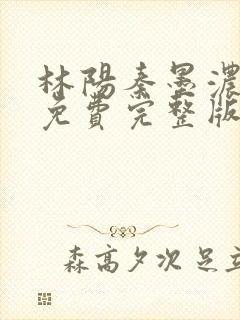 林陽秦墨濃
免費完整版
森高夕次 足立